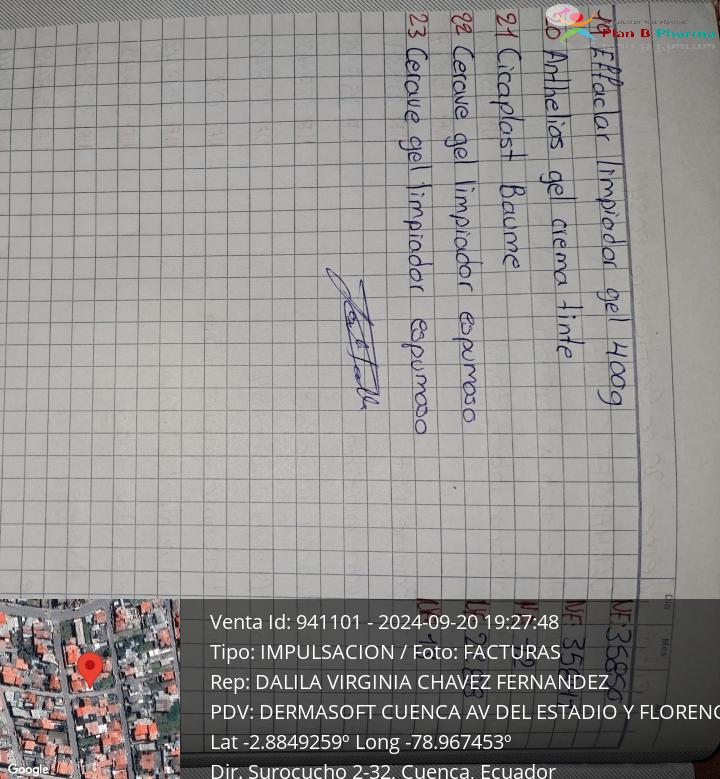 19 Effaclar limpiador gel 400g
20 Anthelios gel crema tinte
21 Cicaplast Baume
22 Cerave gel limpiador espumoso
23 Cerave gel limpiador espumoso
Plan B Pharma
Dia Mes
Venta Id: 941101 - 2024-09-20 19:27:48
Tipo: IMPULSACION / Foto: FACTURAS
Rep: DALILA VIRGINIA CHAVEZ FERNANDEZ
PDV: DERMASOFT CUENCA AV DEL ESTADIO Y FLORENC
Lat -2.8849259º Long -78.967453º
Dir. Surocucho 2-32, Cuenca, Ecuador
Google